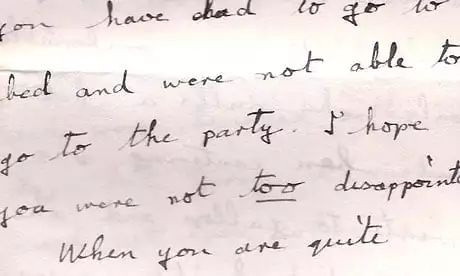 you have had to go to
bed and were not able to
go to the party. I hope
you were not too disappointe
When you are quite